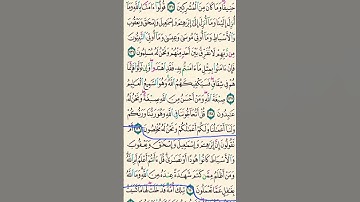 حَنِيفًا وَمَا كَانَ مِنَ ٱلْمُشْرِكِينَ ١٣٥ قُولُوٓا۟ ءَامَنَّا بِٱللَّهِ وَمَآ
أُنزِلَ إِلَيْنَا وَمَآ أُنزِلَ إِلَىٰٓ إِبْرَٰهِـۧمَ وَإِسْمَٰعِيلَ وَإِسْحَٰقَ وَيَعْقُوبَ
وَٱلْأَسْبَاطِ وَمَآ أُوتِىَ مُوسَىٰ وَعِيسَىٰ وَمَآ أُوتِىَ ٱلنَّبِيُّونَ
مِن رَّبِّهِمْ لَا نُفَرِّقُ بَيْنَ أَحَدٍ مِّنْهُمْ وَنَحْنُ لَهُۥ مُسْلِمُونَ ١٣٦
فَإِنْ ءَامَنُوا۟ بِمِثْلِ مَآ ءَامَنتُم بِهِۦ فَقَدِ ٱهْتَدَوا۟ وَّإِن تَوَلَّوْا۟ فَإِنَّمَا
هُمْ فِى شِقَاقٍ فَسَيَكْفِيكَهُمُ ٱللَّهُ وَهُوَ ٱلسَّمِيعُ ٱلْعَلِيمُ ١٣٧
صِبْغَةَ ٱللَّهِ وَمَنْ أَحْسَنُ مِنَ ٱللَّهِ صِبْغَةً وَنَحْنُ لَهُۥ
عَٰبِدُونَ ١٣٨ قُلْ أَتُحَآجُّونَنَا فِى ٱللَّهِ وَهُوَ رَبُّنَا وَرَبُّكُمْ
وَلَنَآ أَعْمَٰلُنَا وَلَكُمْ أَعْمَٰلُكُمْ وَنَحْنُ لَهُۥ مُخْلِصُونَ ١٣٩ أَمْ
تَقُولُونَ إِنَّ إِبْرَٰهِـۧمَ وَإِسْمَٰعِيلَ وَإِسْحَٰقَ وَيَعْقُوبَ
وَٱلْأَسْبَاطَ كَانُوا۟ هُودًا أَوْ نَصَٰرَىٰ قُلْ ءَأَنتُمْ أَعْلَمُ أَمِ ٱللَّهُ
وَمَنْ أَظْلَمُ مِمَّن كَتَمَ شَهَٰدَةً عِندَهُۥ مِنَ ٱللَّهِ وَمَا ٱللَّهُ
بِغَٰفِلٍ عَمَّا تَعْمَلُونَ ١٤٠ تِلْكَ أُمَّةٌ قَدْ خَلَتْ لَهَا مَا كَسَبَتْ